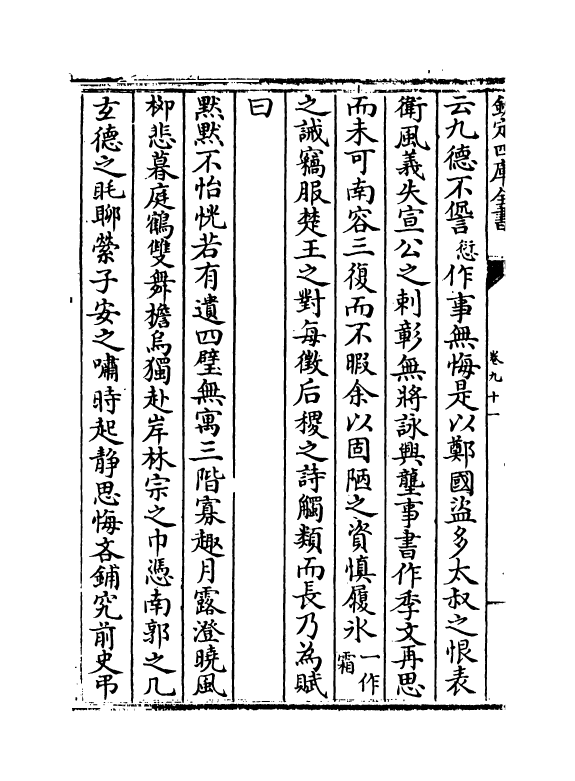 欽定四庫全書
卷九十一
云九德不諐愆作事無悔是以鄭國盜多太叔之恨表
衛風義失宣公之刺彰無將詠興壟事書作季文再思
而未可南容三復而不暇余以固陋之資慎履氷一作霜
之誡竊服楚王之對每徵后稷之詩觸類而長乃為賦
曰
黙黙不怡恍若有遺四壁無寓三階寡趣月露澄曉風
柳悲暮庭鶴雙舞擔烏獨赴岸林宗之巾憑南郭之几
玄德之眊聊縈子安之嘯時起静思悔吝鋪究前史弔